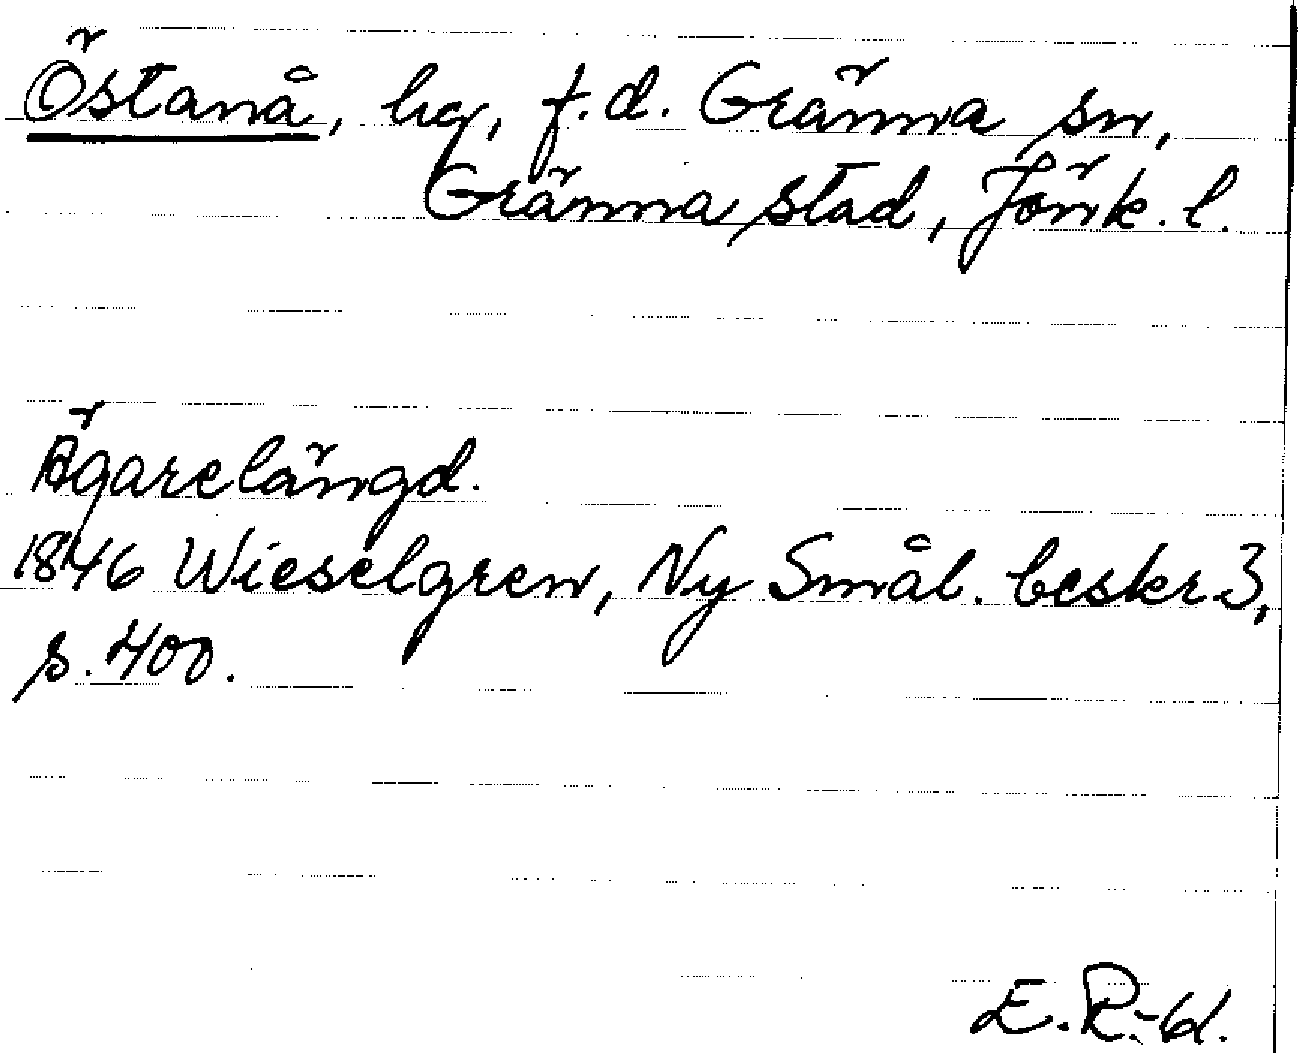 Östanå, hg, f.d. Gränna sn,
Gränna stad, Jönk. l.
Ägarelängd.
1846 Wieselgren, Ny Smål. beskr 3,
s. 400.
E.R.-61.